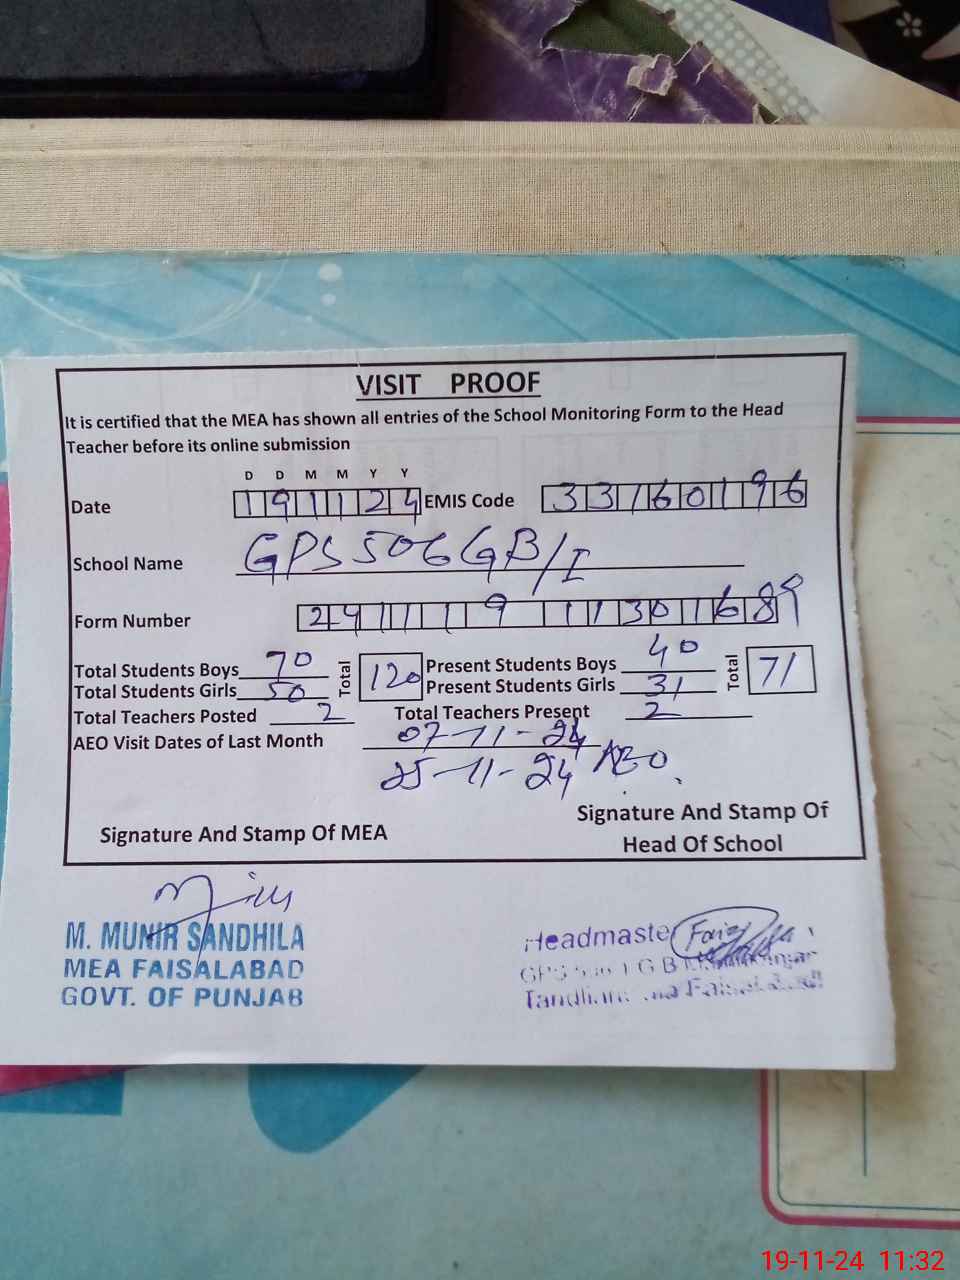 VISIT PROOF
It is certified that the MEA has shown all entries of the School Monitoring Form to the Head
Teacher before its online submission
D D M M Y Y
Date 191124 EMIS Code 33160196
School Name GPS 506 GB/I
Form Number 24111911301689
Total Students Boys 70 Total 120 Present Students Boys 40 Total 71
Total Students Girls 50 Present Students Girls 31
Total Teachers Posted 2 Total Teachers Present 2
AEO Visit Dates of Last Month 07-11-24
25-11-24 AEO
Signature And Stamp Of MEA
Signature And Stamp Of
Head Of School
M. MUNIR SANDHILA
MEA FAISALABAD
GOVT. OF PUNJAB
Headmaster Faiz
GPS GB
19-11-24 11:32